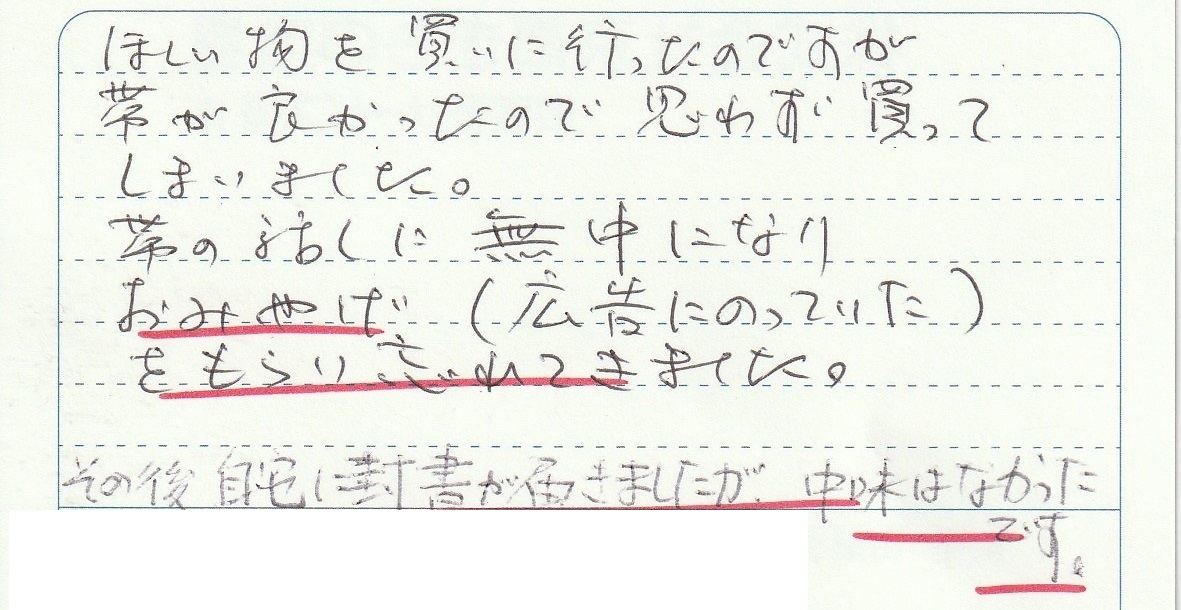 ほしい物を買いに行ったのですが
帯が良かったので思わず買って
しまいました。
帯の話しに無中になり
おみやげ(広告にのっていた)
をもらい忘れてきました。
その後自宅に封書が届きましたが、中味はなかった
です。